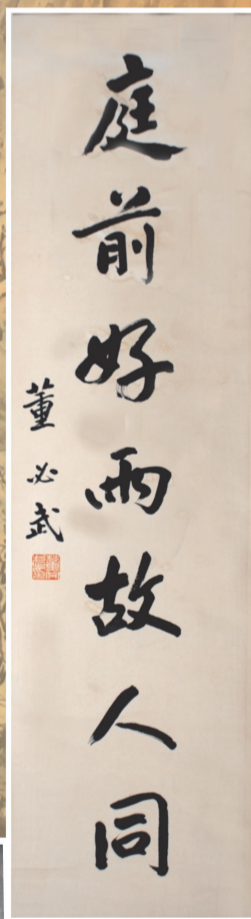 庭前好雨故人同
董必武